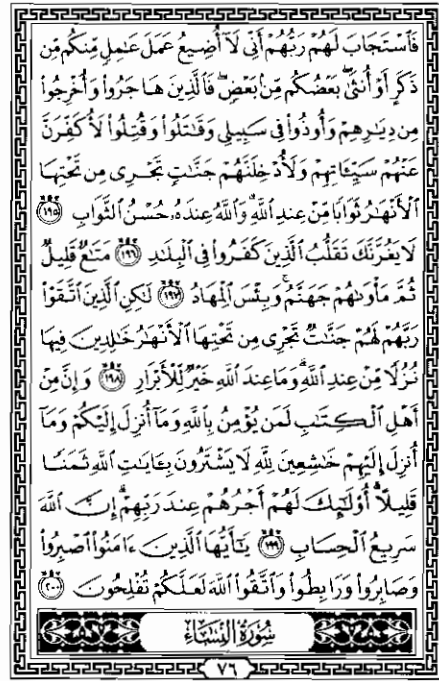 فَٱسْتَجَابَ لَهُمْ رَبُّهُمْ أَنِّى لَآ أُضِيعُ عَمَلَ عَٰمِلٍ مِّنكُم مِّن
ذَكَرٍ أَوْ أُنثَىٰۖ بَعْضُكُم مِّنۢ بَعْضٍۖ فَٱلَّذِينَ هَاجَرُوا۟ وَأُخْرِجُوا۟
مِن دِيَٰرِهِمْ وَأُوذُوا۟ فِى سَبِيلِى وَقَٰتَلُوا۟ وَقُتِلُوا۟ لَأُكَفِّرَنَّ
عَنْهُمْ سَيِّـَٔاتِهِمْ وَلَأُدْخِلَنَّهُمْ جَنَّٰتٍ تَجْرِى مِن تَحْتِهَا
ٱلْأَنْهَٰرُ ثَوَابًا مِّنْ عِندِ ٱللَّهِۗ وَٱللَّهُ عِندَهُۥ حُسْنُ ٱلثَّوَابِ ١٩٥
لَا يَغُرَّنَّكَ تَقَلُّبُ ٱلَّذِينَ كَفَرُوا۟ فِى ٱلْبِلَٰدِ ١٩٦ مَتَٰعٌ قَلِيلٌ
ثُمَّ مَأْوَىٰهُمْ جَهَنَّمُۚ وَبِئْسَ ٱلْمِهَادُ ١٩٧ لَٰكِنِ ٱلَّذِينَ ٱتَّقَوْا۟
رَبَّهُمْ لَهُمْ جَنَّٰتٌ تَجْرِى مِن تَحْتِهَا ٱلْأَنْهَٰرُ خَٰلِدِينَ فِيهَا
نُزُلًا مِّنْ عِندِ ٱللَّهِۗ وَمَا عِندَ ٱللَّهِ خَيْرٌ لِّلْأَبْرَارِ ١٩٨ وَإِنَّ مِنْ
أَهْلِ ٱلْكِتَٰبِ لَمَن يُؤْمِنُ بِٱللَّهِ وَمَآ أُنزِلَ إِلَيْكُمْ وَمَآ
أُنزِلَ إِلَيْهِمْ خَٰشِعِينَ لِلَّهِ لَا يَشْتَرُونَ بِـَٔايَٰتِ ٱللَّهِ ثَمَنًا
قَلِيلًاۗ أُو۟لَٰٓئِكَ لَهُمْ أَجْرُهُمْ عِندَ رَبِّهِمْۗ إِنَّ ٱللَّهَ
سَرِيعُ ٱلْحِسَابِ ١٩٩ يَٰٓأَيُّهَا ٱلَّذِينَ ءَامَنُوا۟ ٱصْبِرُوا۟
وَصَابِرُوا۟ وَرَابِطُوا۟ وَٱتَّقُوا۟ ٱللَّهَ لَعَلَّكُمْ تُفْلِحُونَ ٢٠٠
سُورَةُ النِّسَاءِ
٧٦